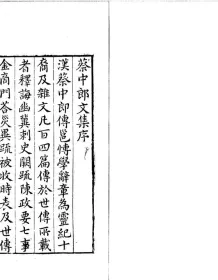 蔡中郎文集序
漢蔡中郎傳邕愽學辭章為靈紀十
裔及雜文凡百四篇傳於世傳所載
者釋誨幽冀刺史闕疏陳政要七事
金商門荅災異疏被收時表及世傳